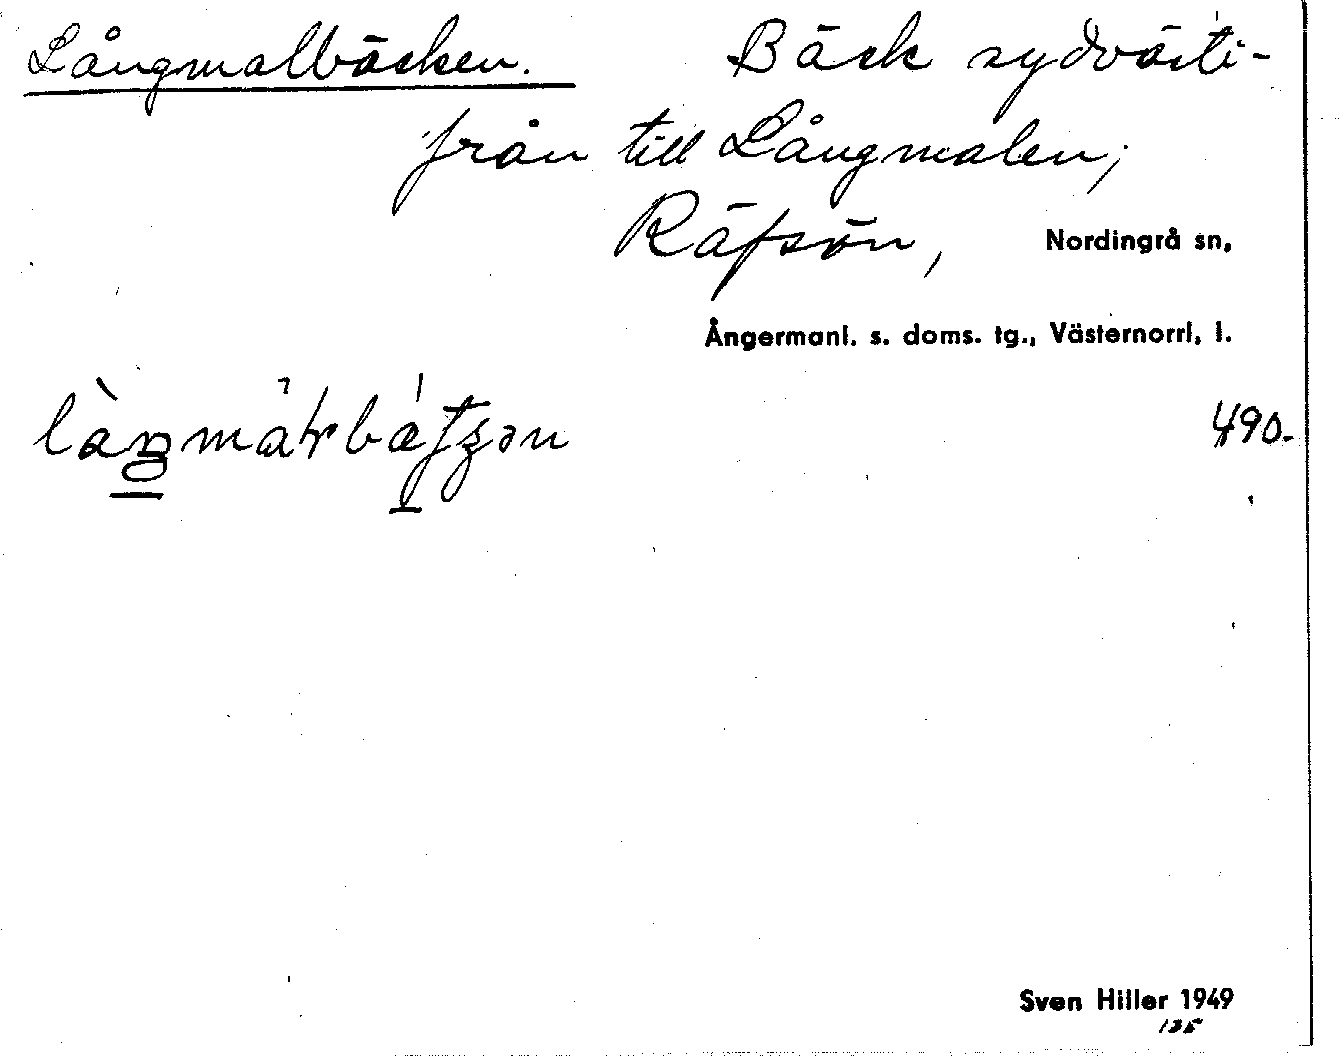 Långmalbäcken. Bäck sydväst i-
från till Långmalen,
Räfsön, Nordingrå sn,
Ångermanl. s. doms. tg., Västernorrl. l.
490.
Sven Hiller 1949
135